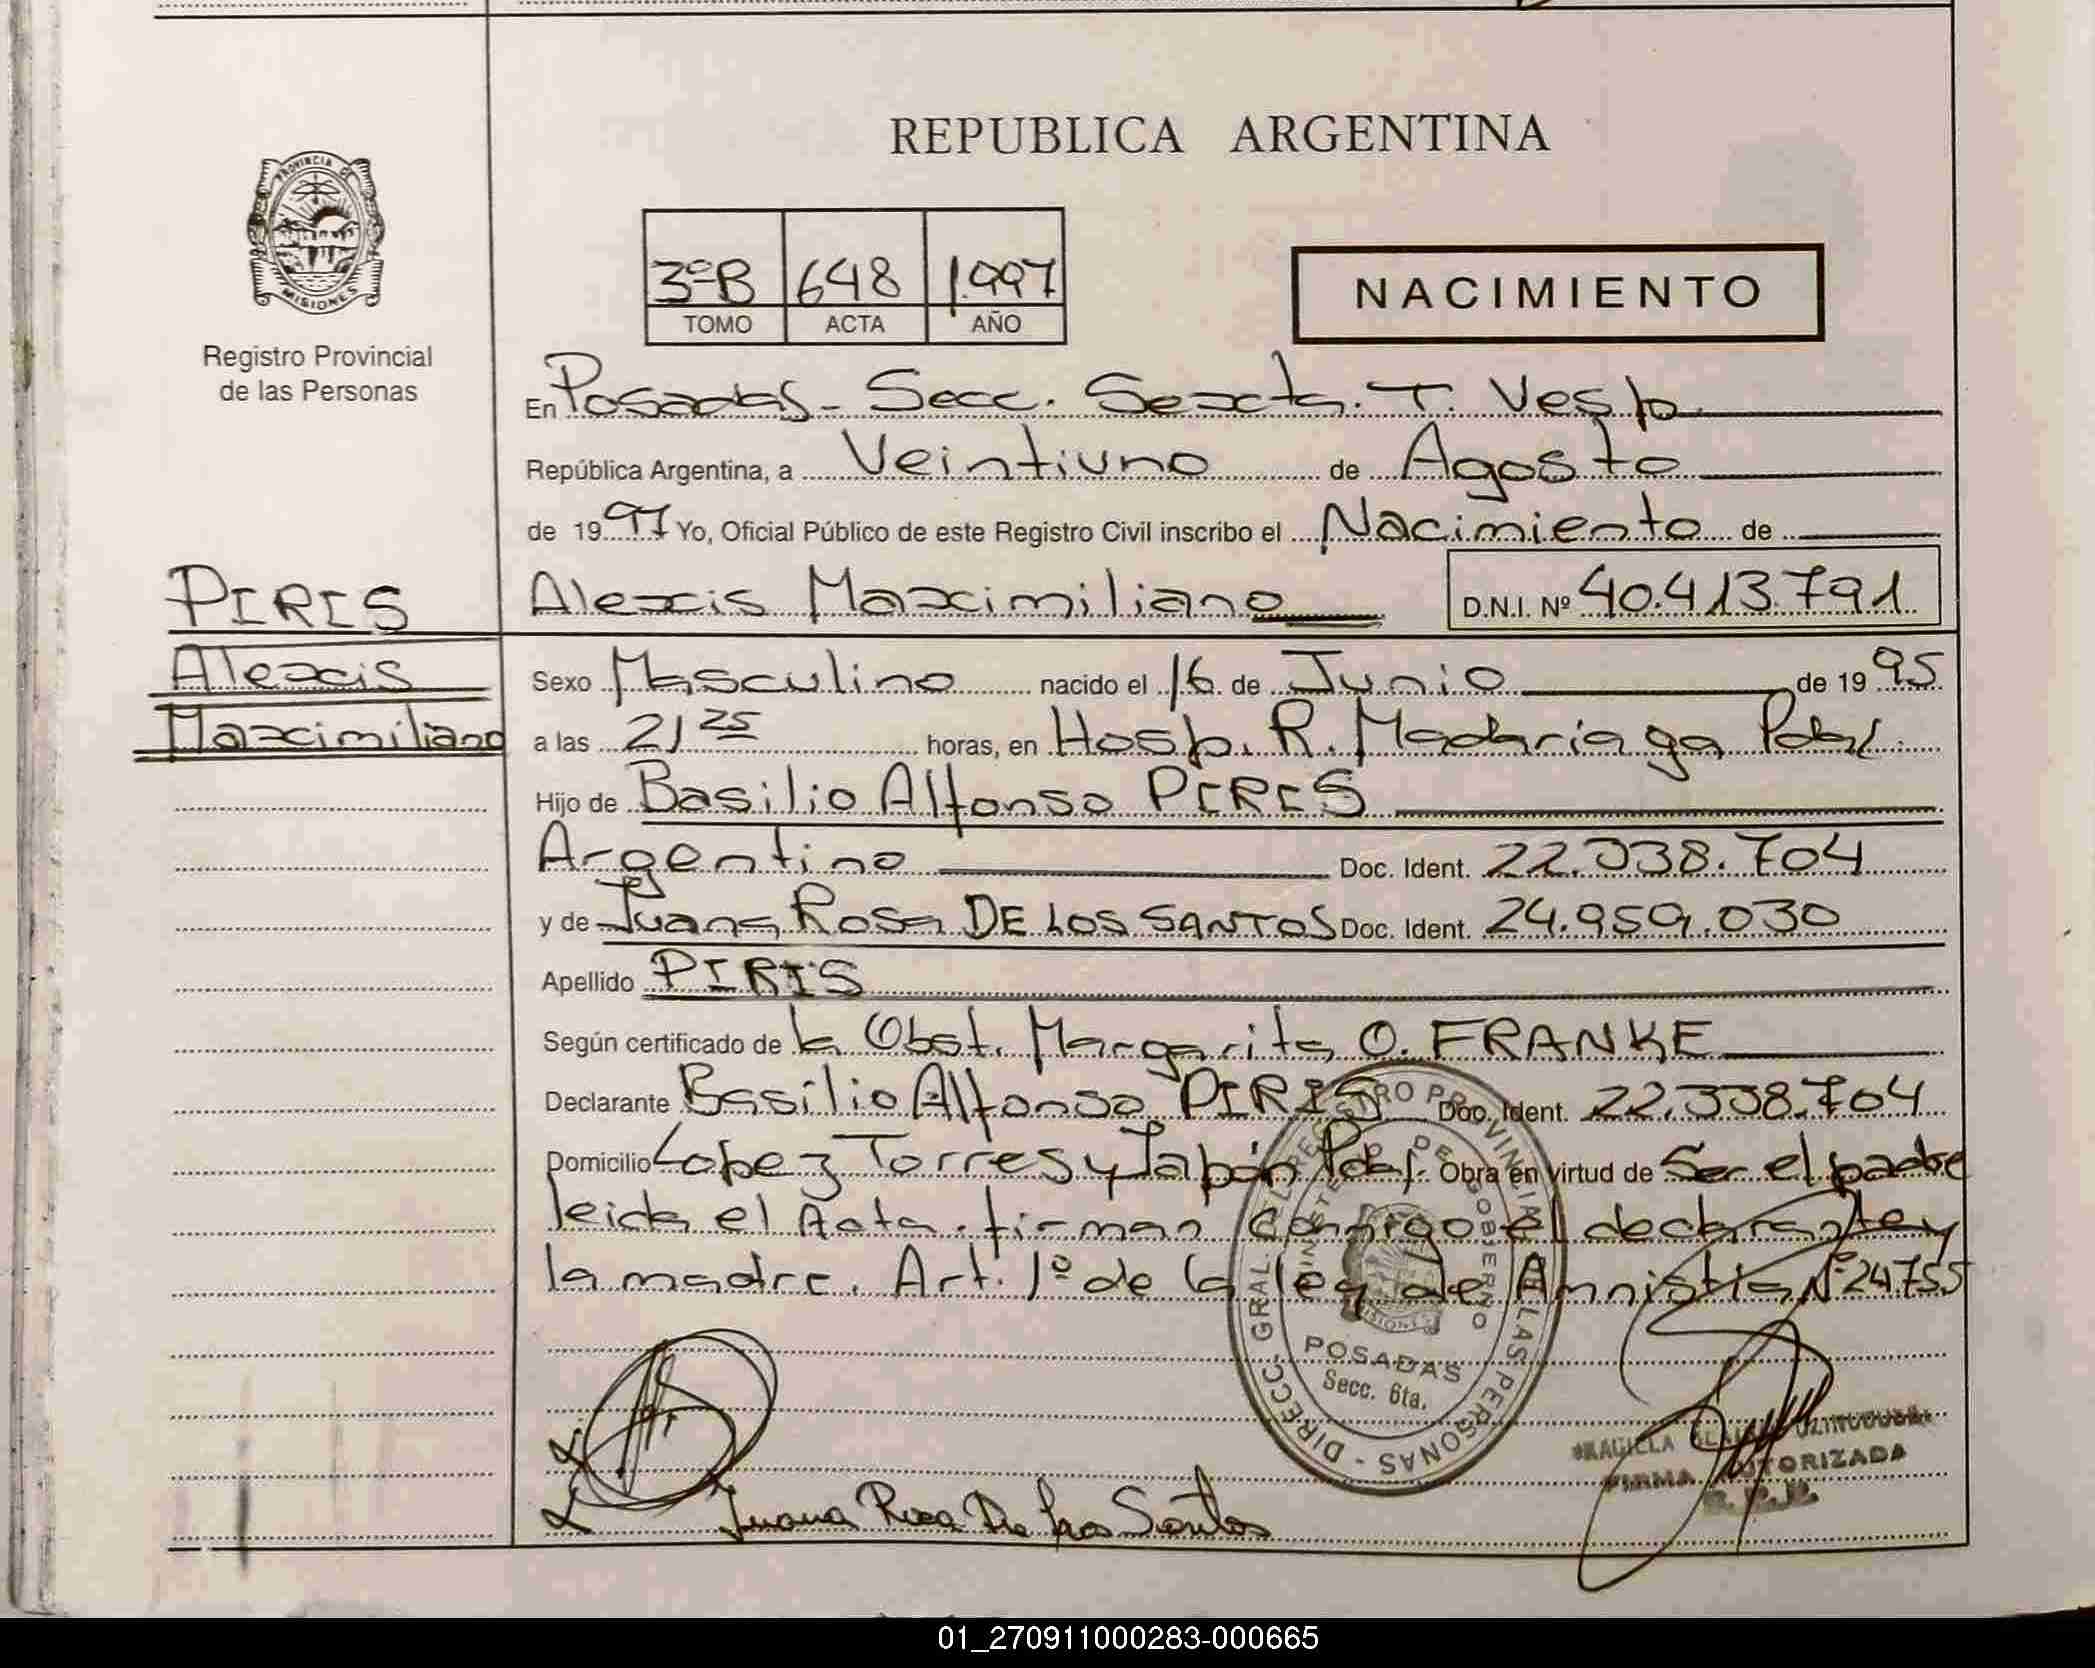 REPUBLICA ARGENTINA
PROVINCIA DE
MISIONES
Registro Provincial
de las Personas
3ºB 648 1.997
TOMO ACTA AÑO
NACIMIENTO
En Posadas - Secc. Sexta. T. Vesp.
República Argentina, a Veintiuno de Agosto
de 1997 Yo, Oficial Público de este Registro Civil inscribo el Nacimiento de
PIRIS
Alexis
Maximiliano
Alexis Maximiliano D.N.I. Nº 40.413.791
Sexo Masculino nacido el 16 de Junio de 1995
a las 21 25 horas, en Hosp. R. Madariaga Pdas.
Hijo de Basilio Alfonso PIRIS
Argentino Doc. Ident. 22.338.704
y de Juana Rosa DE LOS SANTOS Doc. Ident. 24.959.030
Apellido PIRIS
Según certificado de la Obst. Margarita O. FRANKE
Declarante Basilio Alfonso PIRIS Doc. Ident. 22.338.704
Domicilio Lopez Torres y Japón Pdas. Obra en virtud de Ser el padre
leida el Acta. firman conmigo el declarante y
la madre. Art. 1º de la ley de Amnistia Nº 24755
DIRECC. GRAL. DEL REGISTRO PROVINCIAL DE LAS PERSONAS
MINISTERIO DE GOBIERNO
MISIONES
POSADAS
Secc. 6ta.
FIRMA AUTORIZADA
R.P.P.
Juana Rosa De Los Santos
01_270911000283-000665